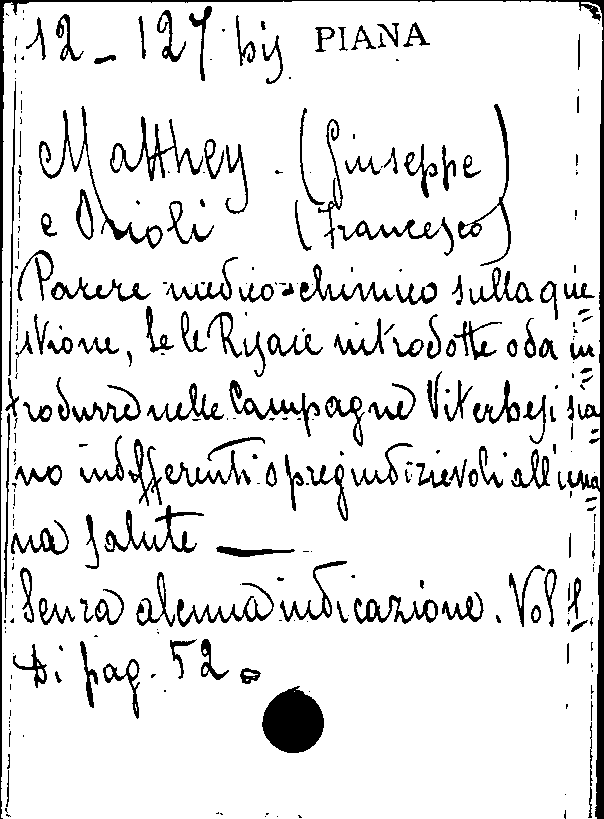 12 - 127 bis PIANA
Matthey. (Giuseppe)
e Orioli (Francesco)
Parere medico=chimico sulla que
stione, se le Risaie introdotte o da in
trodurre nelle Campagne Viterbesi sia
no indifferenti o pregiudizievoli all'uma
na salute —
Senza alcuna indicazione. Vol 1
Di pag. 52.